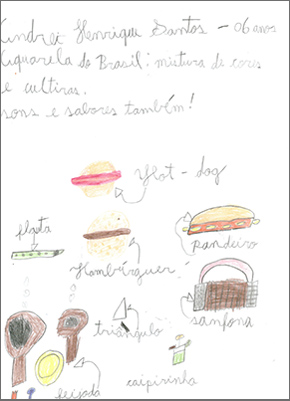 Kindrei Henrique Santos - 06 anos
Aquarela do Brasil: mistura de cores
e culturas.
sons e sabores também!
Hot-dog
flauta
pandeiro
Hambúrguer
triângulo
sanfona
feijoda
caipirinha